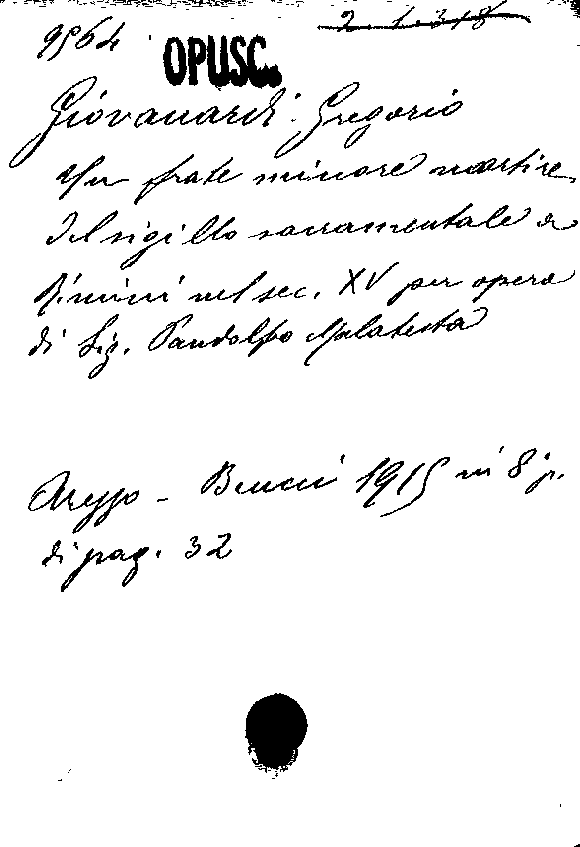 9564 2. 1. 318
OPUSC.
Giovanardi Gregorio
Un frate minore martire
del sigillo sacramentale a
Rimini nel sec. XV per opera
di Sig. Pandolfo Malatesta
Arezzo - Beucci 1915 in 8 p.
di pag. 32